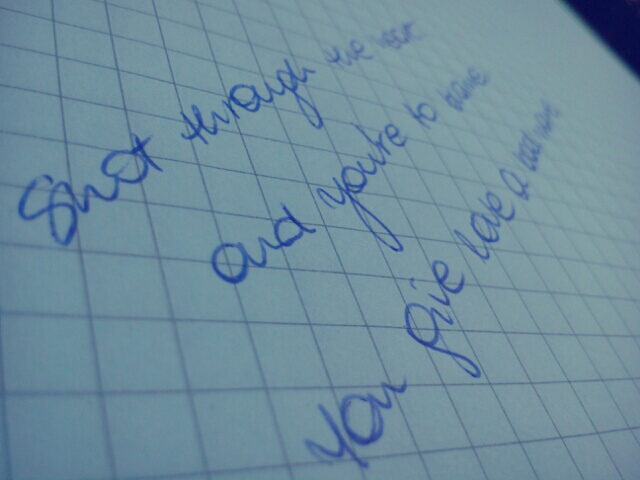 Shot through the heart
and you're to blame
You give love a bad name